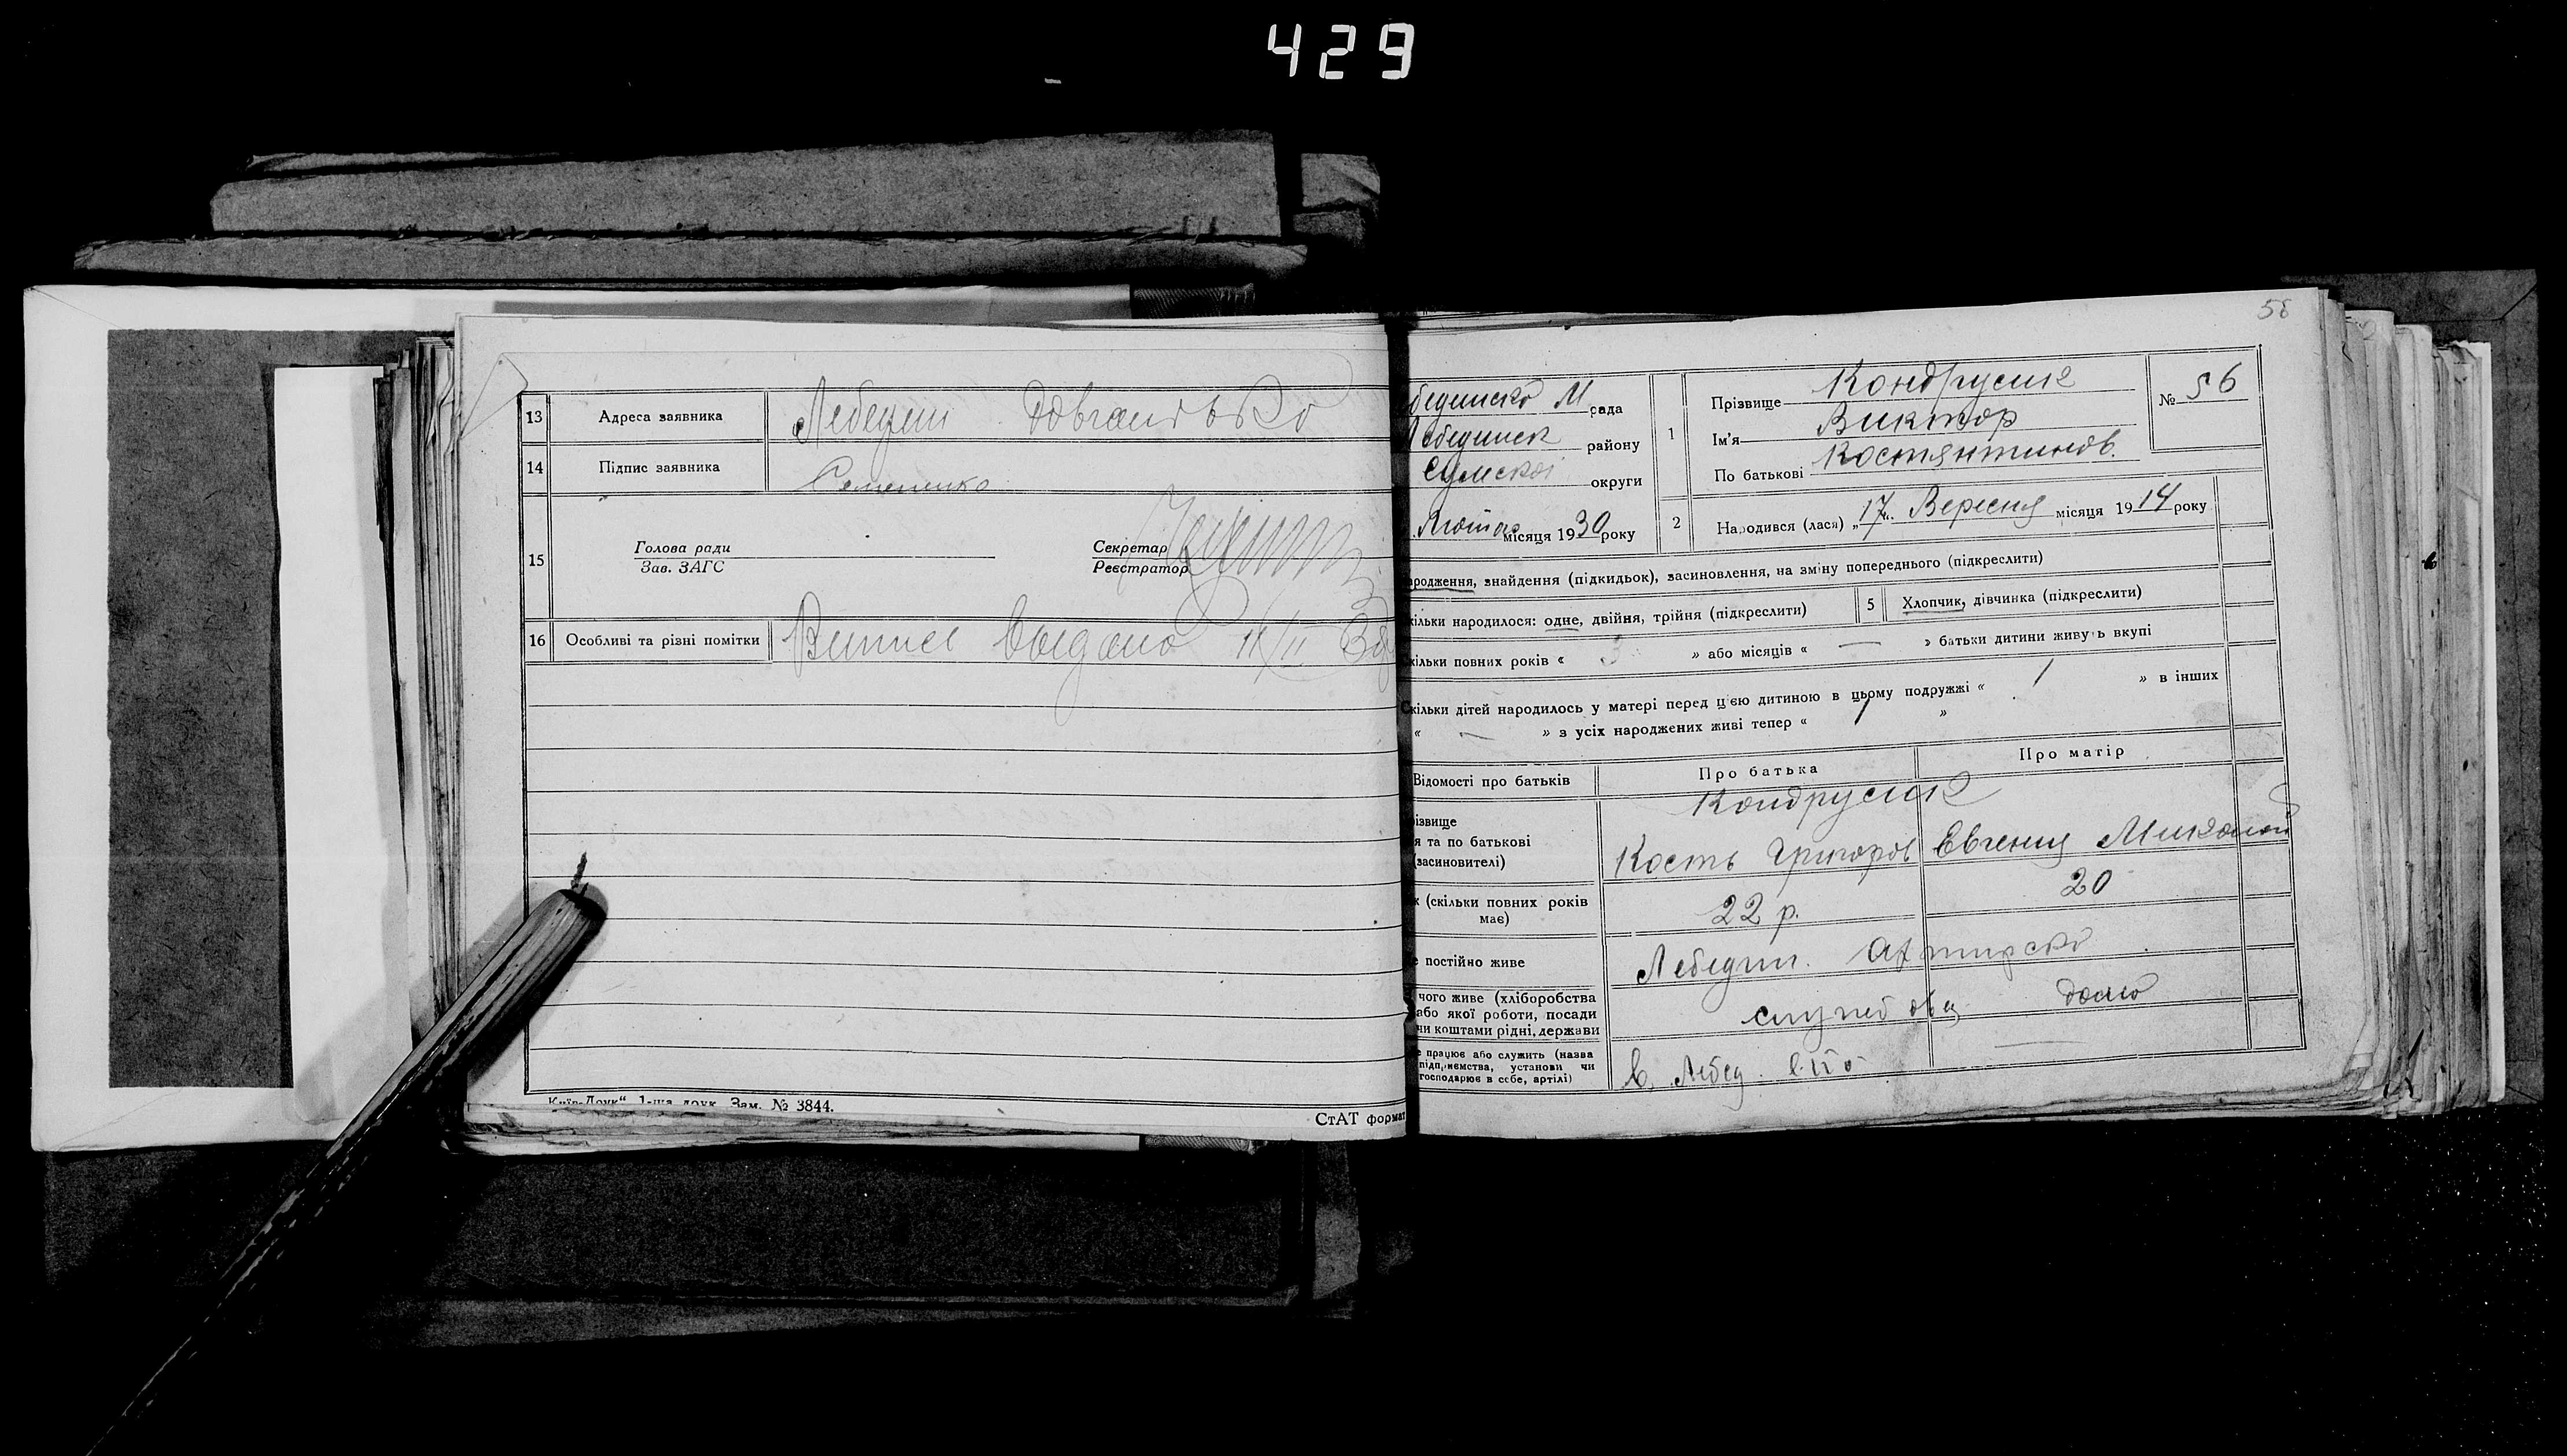 429
13 Адреса заявника Лебедин
14 Підпис заявника Семененко
15 Голова ради
Зав. ЗАГС
Секретар
Реєстратор
16 Особливі та різні помітки
Київ-Друк" 1-ша друк. Зам. № 3844.
СтАТ формат
58
бединско М рада
Лебединск району
Сумскої округи
Лютого місяця 1930 року
1 Прізвище
Ім'я Виктор
По батькові Костянтинов.
№ 56
2 Народився (лася) „17„ Вересня місяця 1914 року
ародження, знайдення (підкидьок), засиновлення, на зміну попереднього (підкреслити)
кільки народилося: одне, двійня, трійня (підкреслити) 5 Хлопчик, дівчинка (підкреслити)
кільки повних років « 3 » або місяців « — » батьки дитини живуть вкупі
Скільки дітей народилось у матері перед цією дитиною в цьому подружжі « 1 » в інших
« — » з усіх народжених живі тепер « 1 »
Відомості про батьків Про батька Про матір
ізвище
я та по батькові
(засиновителі) Кость Григоров Евгения
к (скільки повних років
має) 22 р. 20
е постійно живе Лебедин.
чого живе (хліборобства
або якої роботи, посади
чи коштами рідні, держави
е працює або служить (назва
підприємства, установи чи
господарює в себе, артілі) в Лебед.